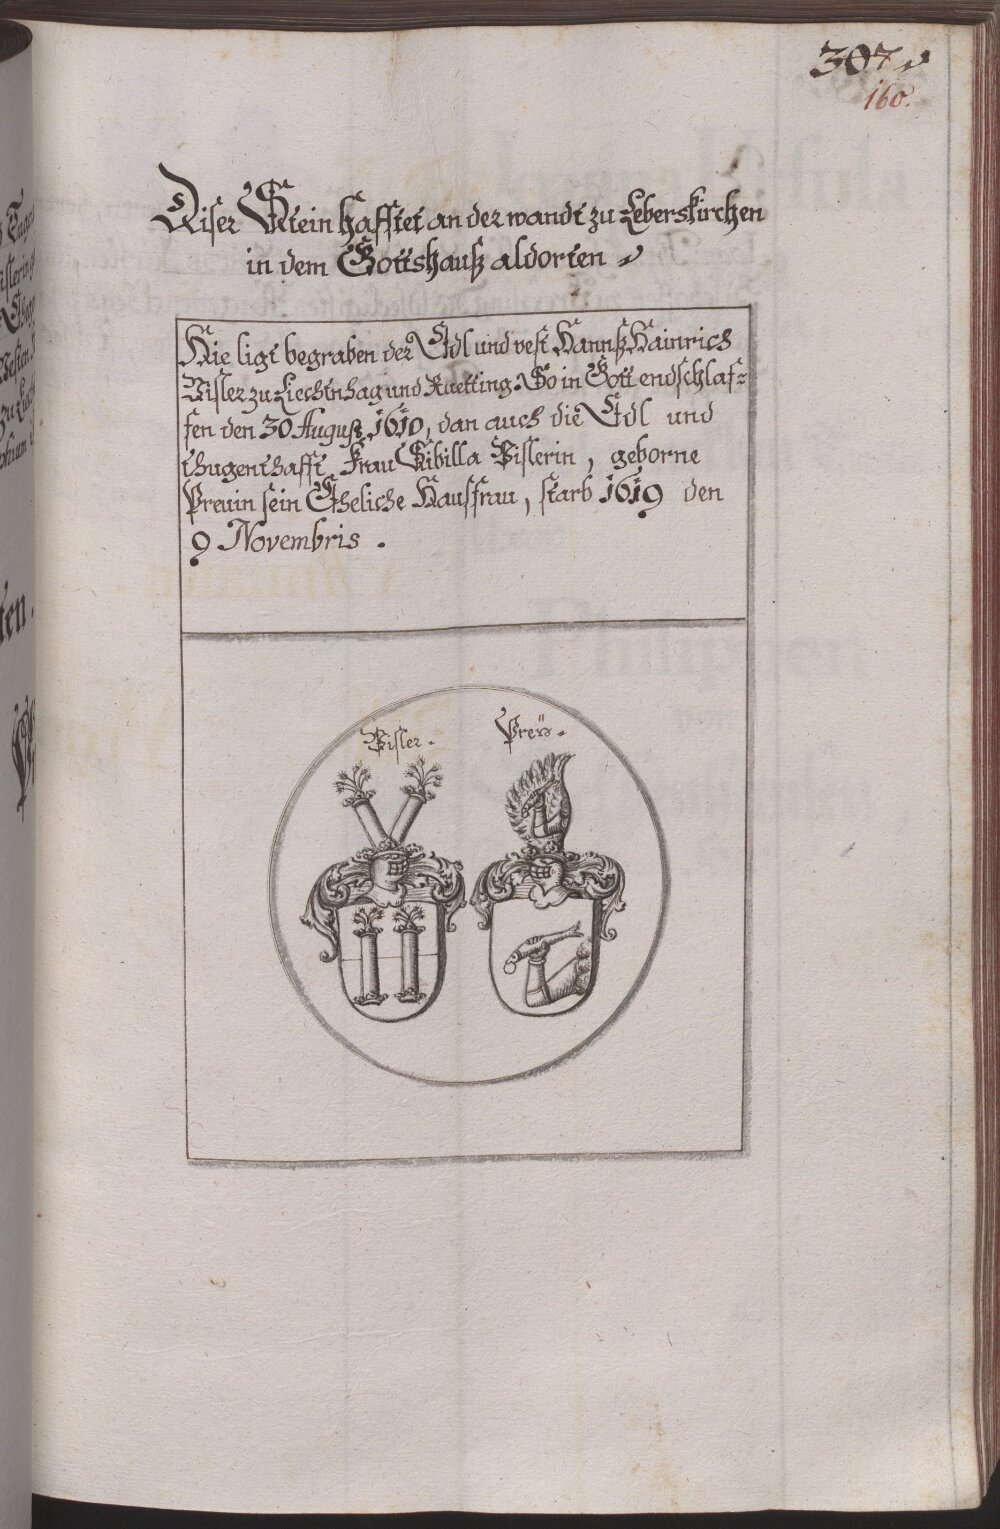 307
160.
Diser Stein hafftet an der wandt zu Leberskirchen
in dem Gottshauß aldorten
Hie ligt begraben der Edl und vest Hannß Hainrich
Pisler zu Liechtnhag und Ruetting. So in Gott endschlaf-
fen den 30 August 1610, dan auch die Edl und
thugenthafft Frau Sibilla Pislerin, geborne
Preuin sein Eheliche Hausfrau, starb 1619 den
9 Novembris.
Pisler. Preÿ.